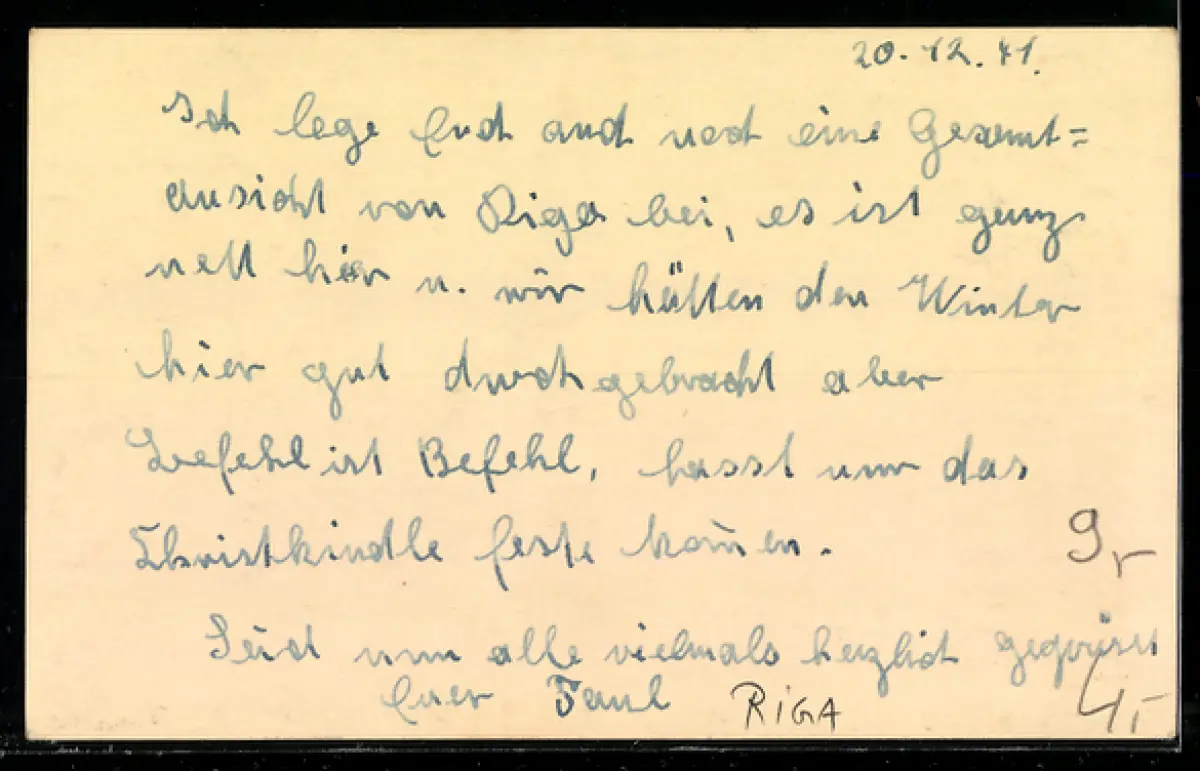 20.12.41.
Ich lege Euch auch noch eine Gesamt=
ansicht von Riga bei, es ist ganz
nett hier u. wir hätten den Winter
hier gut durchgebracht aber
Befehl ist Befehl, lasst nur das
Christkindle feste kom̄en.
9,-
Seid nun alle vielmals herzlich gegrüsst
Euer Paul RIGA
4,-